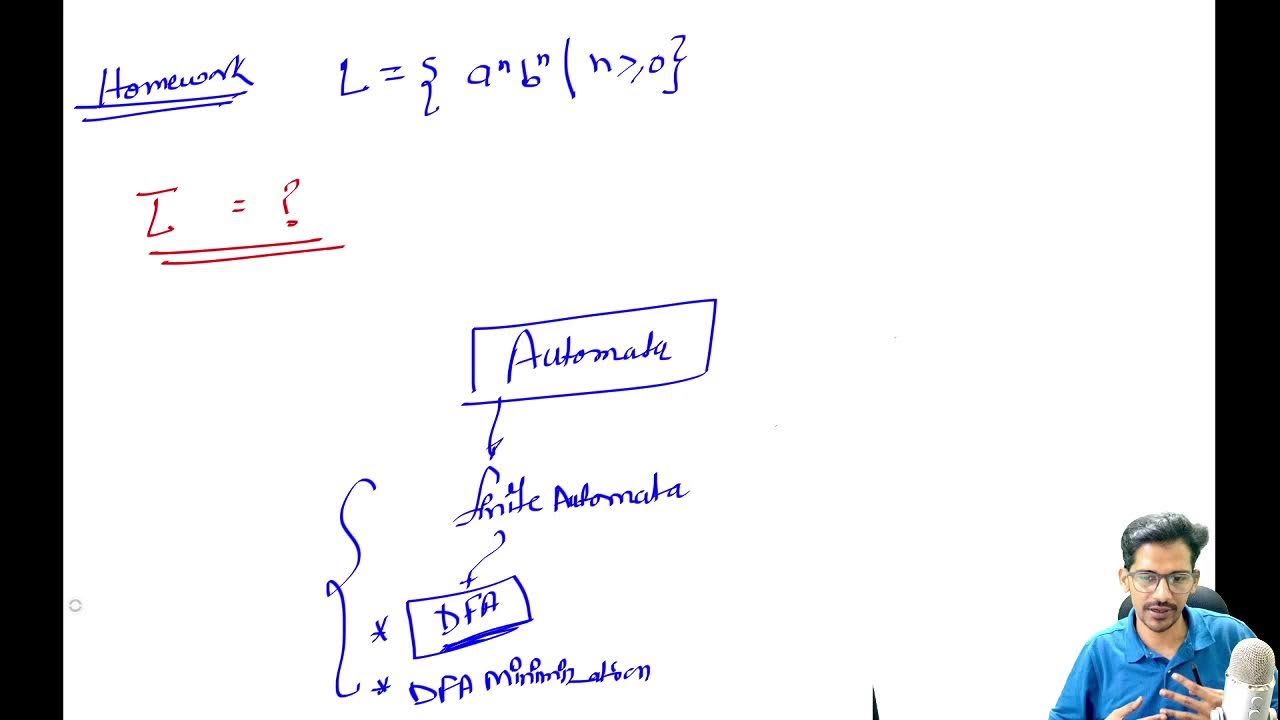 Homework L = { aⁿ bⁿ | n ≥ 0 }
L̅ = ?
Automata
finite Automata
* DFA
* DFA Minimization